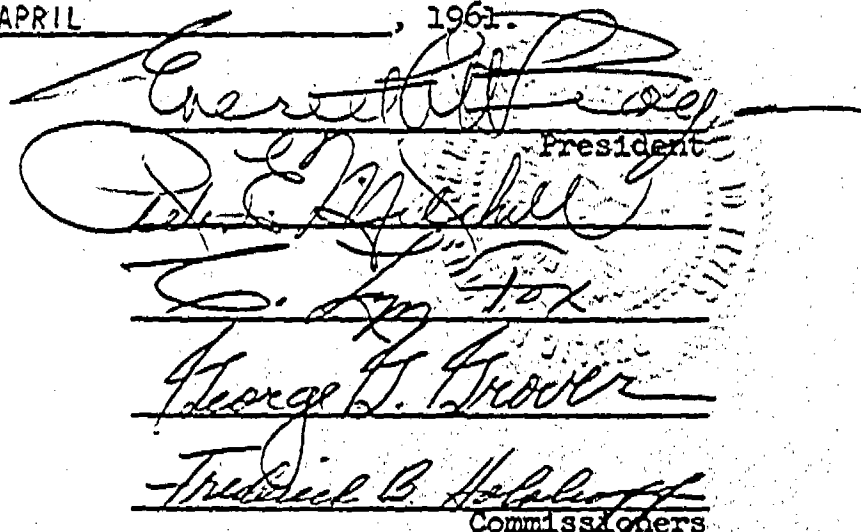 APRIL, 1961.
President
Peter E. Mitchell
C. Lyn Fox
George G. Grover
Frederick B. Holoboff
Commissioners